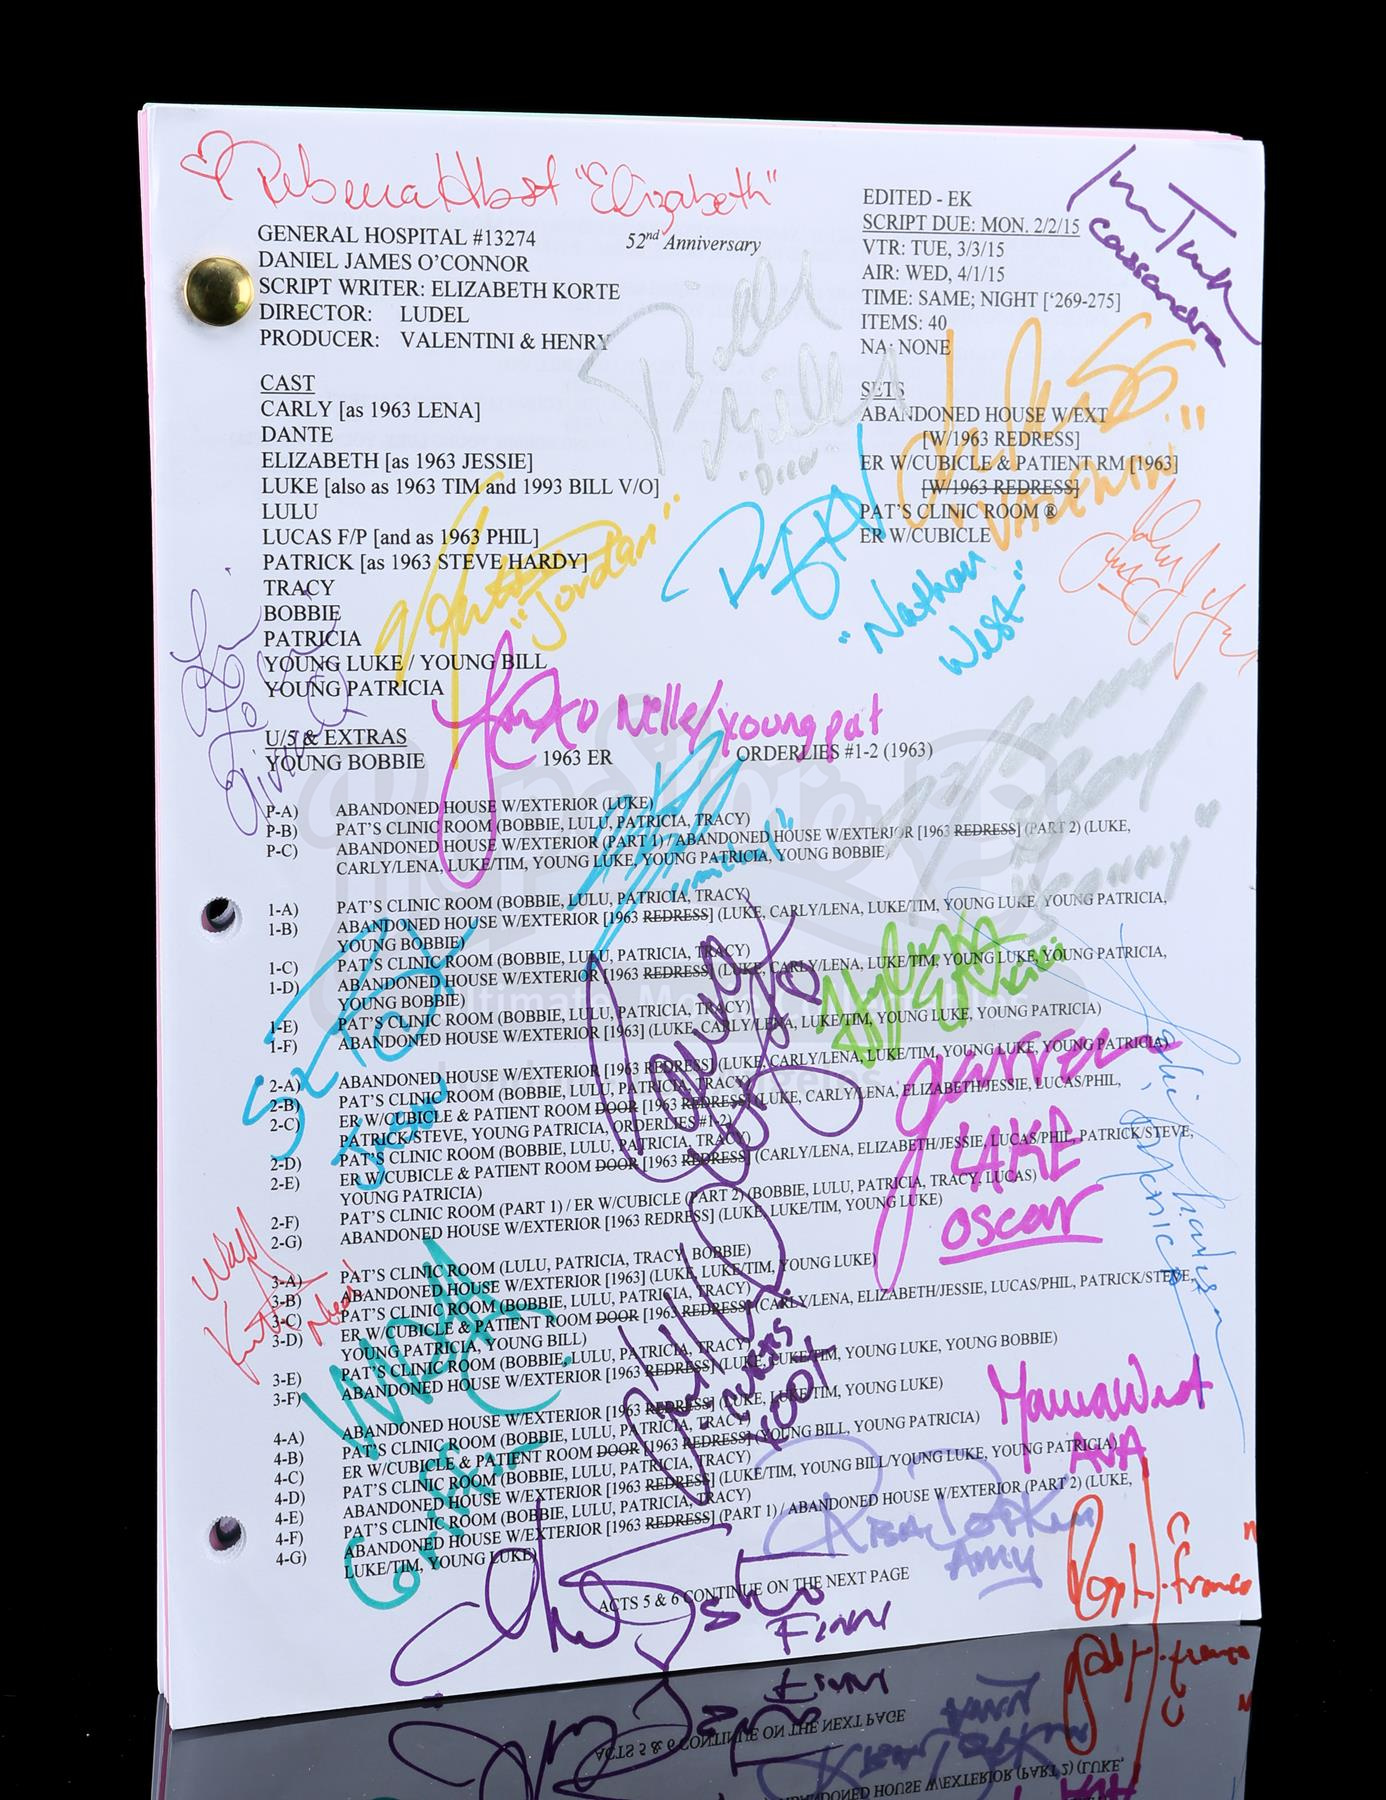 Rebecca Herbst "Elizabeth"
EDITED - EK
SCRIPT DUE: MON. 2/2/15
VTR: TUE, 3/3/15
AIR: WED, 4/1/15
TIME: SAME; NIGHT ['269-275]
ITEMS: 40
NA: NONE
cassandra
GENERAL HOSPITAL #13274
52nd Anniversary
DANIEL JAMES O'CONNOR
SCRIPT WRITER: ELIZABETH KORTE
DIRECTOR: LUDEL
PRODUCER: VALENTINI & HENRY
Billy Miller
"Drew"
CAST
CARLY [as 1963 LENA]
DANTE
ELIZABETH [as 1963 JESSIE]
LUKE [also as 1963 TIM and 1993 BILL V/O]
LULU
LUCAS F/P [and as 1963 PHIL]
PATRICK [as 1963 STEVE HARDY]
TRACY
BOBBIE
PATRICIA
YOUNG LUKE / YOUNG BILL
YOUNG PATRICIA
SETS
ABANDONED HOUSE W/EXT
[W/1963 REDRESS]
ER W/CUBICLE & PATIENT RM [1963]
[W/1963 REDRESS]
PAT'S CLINIC ROOM ®
ER W/CUBICLE
"Jordan"
"Nathan
West"
xo Nelle/young pat
U/5 & EXTRAS
YOUNG BOBBIE 1963 ER ORDERLIES #1-2 (1963)
P-A) ABANDONED HOUSE W/EXTERIOR (LUKE)
P-B) PAT'S CLINIC ROOM (BOBBIE, LULU, PATRICIA, TRACY)
P-C) ABANDONED HOUSE W/EXTERIOR (PART 1) / ABANDONED HOUSE W/EXTERIOR [1963 REDRESS] (PART 2) (LUKE,
CARLY/LENA, LUKE/TIM, YOUNG LUKE, YOUNG PATRICIA, YOUNG BOBBIE)
1-A) PAT'S CLINIC ROOM (BOBBIE, LULU, PATRICIA, TRACY)
1-B) ABANDONED HOUSE W/EXTERIOR [1963 REDRESS] (LUKE, CARLY/LENA, LUKE/TIM, YOUNG LUKE, YOUNG PATRICIA,
YOUNG BOBBIE)
1-C) PAT'S CLINIC ROOM (BOBBIE, LULU, PATRICIA, TRACY)
1-D) ABANDONED HOUSE W/EXTERIOR [1963 REDRESS] (LUKE, CARLY/LENA, LUKE/TIM, YOUNG LUKE, YOUNG PATRICIA,
YOUNG BOBBIE)
1-E) PAT'S CLINIC ROOM (BOBBIE, LULU, PATRICIA, TRACY)
1-F) ABANDONED HOUSE W/EXTERIOR [1963] (LUKE, CARLY/LENA, LUKE/TIM, YOUNG LUKE, YOUNG PATRICIA)
2-A) ABANDONED HOUSE W/EXTERIOR [1963 REDRESS] (LUKE, CARLY/LENA, LUKE/TIM, YOUNG LUKE, YOUNG PATRICIA)
2-B) PAT'S CLINIC ROOM (BOBBIE, LULU, PATRICIA, TRACY)
2-C) ER W/CUBICLE & PATIENT ROOM DOOR [1963 REDRESS] (LUKE, CARLY/LENA, ELIZABETH/JESSIE, LUCAS/PHIL,
PATRICK/STEVE, YOUNG PATRICIA, ORDERLIES #1-2)
2-D) PAT'S CLINIC ROOM (BOBBIE, LULU, PATRICIA, TRACY)
2-E) ER W/CUBICLE & PATIENT ROOM DOOR [1963 REDRESS] (CARLY/LENA, ELIZABETH/JESSIE, LUCAS/PHIL, PATRICK/STEVE,
YOUNG PATRICIA)
2-F) PAT'S CLINIC ROOM (PART 1) / ER W/CUBICLE (PART 2) (BOBBIE, LULU, PATRICIA, TRACY, LUCAS)
2-G) ABANDONED HOUSE W/EXTERIOR [1963 REDRESS] (LUKE, LUKE/TIM, YOUNG LUKE)
3-A) PAT'S CLINIC ROOM (LULU, PATRICIA, TRACY, BOBBIE)
3-B) ABANDONED HOUSE W/EXTERIOR [1963] (LUKE, LUKE/TIM, YOUNG LUKE)
3-C) PAT'S CLINIC ROOM (BOBBIE, LULU, PATRICIA, TRACY)
3-D) ER W/CUBICLE & PATIENT ROOM DOOR [1963 REDRESS] (CARLY/LENA, ELIZABETH/JESSIE, LUCAS/PHIL, PATRICK/STEVE,
YOUNG PATRICIA, YOUNG BILL)
3-E) PAT'S CLINIC ROOM (BOBBIE, LULU, PATRICIA, TRACY)
3-F) ABANDONED HOUSE W/EXTERIOR [1963 REDRESS] (LUKE, LUKE/TIM, YOUNG LUKE, YOUNG BOBBIE)
4-A) ABANDONED HOUSE W/EXTERIOR [1963 REDRESS] (LUKE, LUKE/TIM, YOUNG LUKE)
4-B) PAT'S CLINIC ROOM (BOBBIE, LULU, PATRICIA, TRACY)
4-C) ER W/CUBICLE & PATIENT ROOM DOOR [1963 REDRESS] (YOUNG BILL, YOUNG PATRICIA)
4-D) PAT'S CLINIC ROOM (BOBBIE, LULU, PATRICIA, TRACY)
4-E) ABANDONED HOUSE W/EXTERIOR [1963 REDRESS] (LUKE/TIM, YOUNG BILL/YOUNG LUKE, YOUNG PATRICIA)
4-F) PAT'S CLINIC ROOM (BOBBIE, LULU, PATRICIA, TRACY)
4-G) ABANDONED HOUSE W/EXTERIOR [1963 REDRESS] (PART 1) / ABANDONED HOUSE W/EXTERIOR (PART 2) (LUKE,
LUKE/TIM, YOUNG LUKE)
ACTS 5 & 6 CONTINUE ON THE NEXT PAGE
Jason
Garren
LAKE
oscar
Maura West
AVA
Amy
Finn
Franco